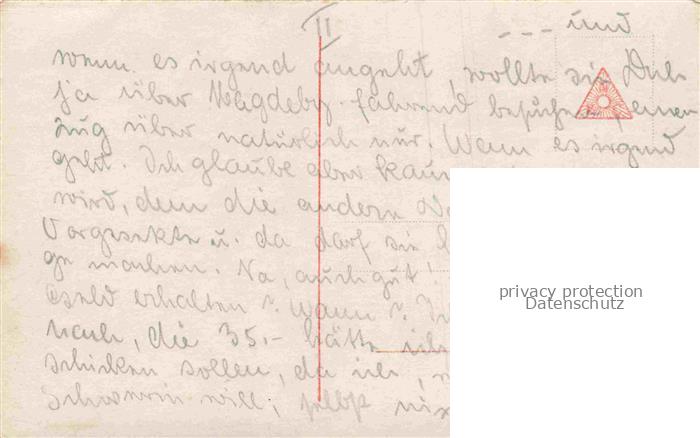 II
--- und
wenn es irgend angeht, wollte sie Dich
ja über Magdebg. fahrend besuchen
zug über natürlich nur. Wenn es irgend
geht. Ich glaube aber kaum
wird, denn die andere
Vorgesetzte u. da darf sie
ge machen. Na, auch gut!
Geld erhalten? Wann?
nach, die 35.- hätte ich
schicken sollen, da ich,
Schwerin will, selbst
privacy protection
Datenschutz